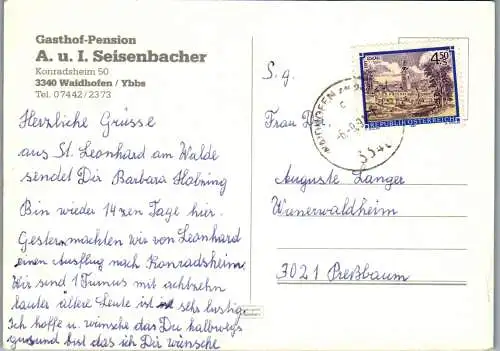 Gasthof-Pension
A. u. I. Seisenbacher
Konradsheim 50
3340 Waidhofen / Ybbs
Tel. 07442/2373
Herzliche Grüsse
aus St. Leonhard am Walde
sendet Dir Barbara
Bin wieder 14zen Tage hier.
Gestern machten wir von Leonhard
einen Ausflug nach Konradsheim.
Wir sind 1 Turnus mit achtzehn
lauter ältere Leute ist sehr lustig.
Ich hoffe u. wünsche das Du halbwegs
gesund bist das ich Dir wünsche
4.50
S
REPUBLIK ÖSTERREICH
WAIDHOFEN
3340
S. g.
Frau
Auguste Langer
Wienerwaldheim
3021 Preßbaum